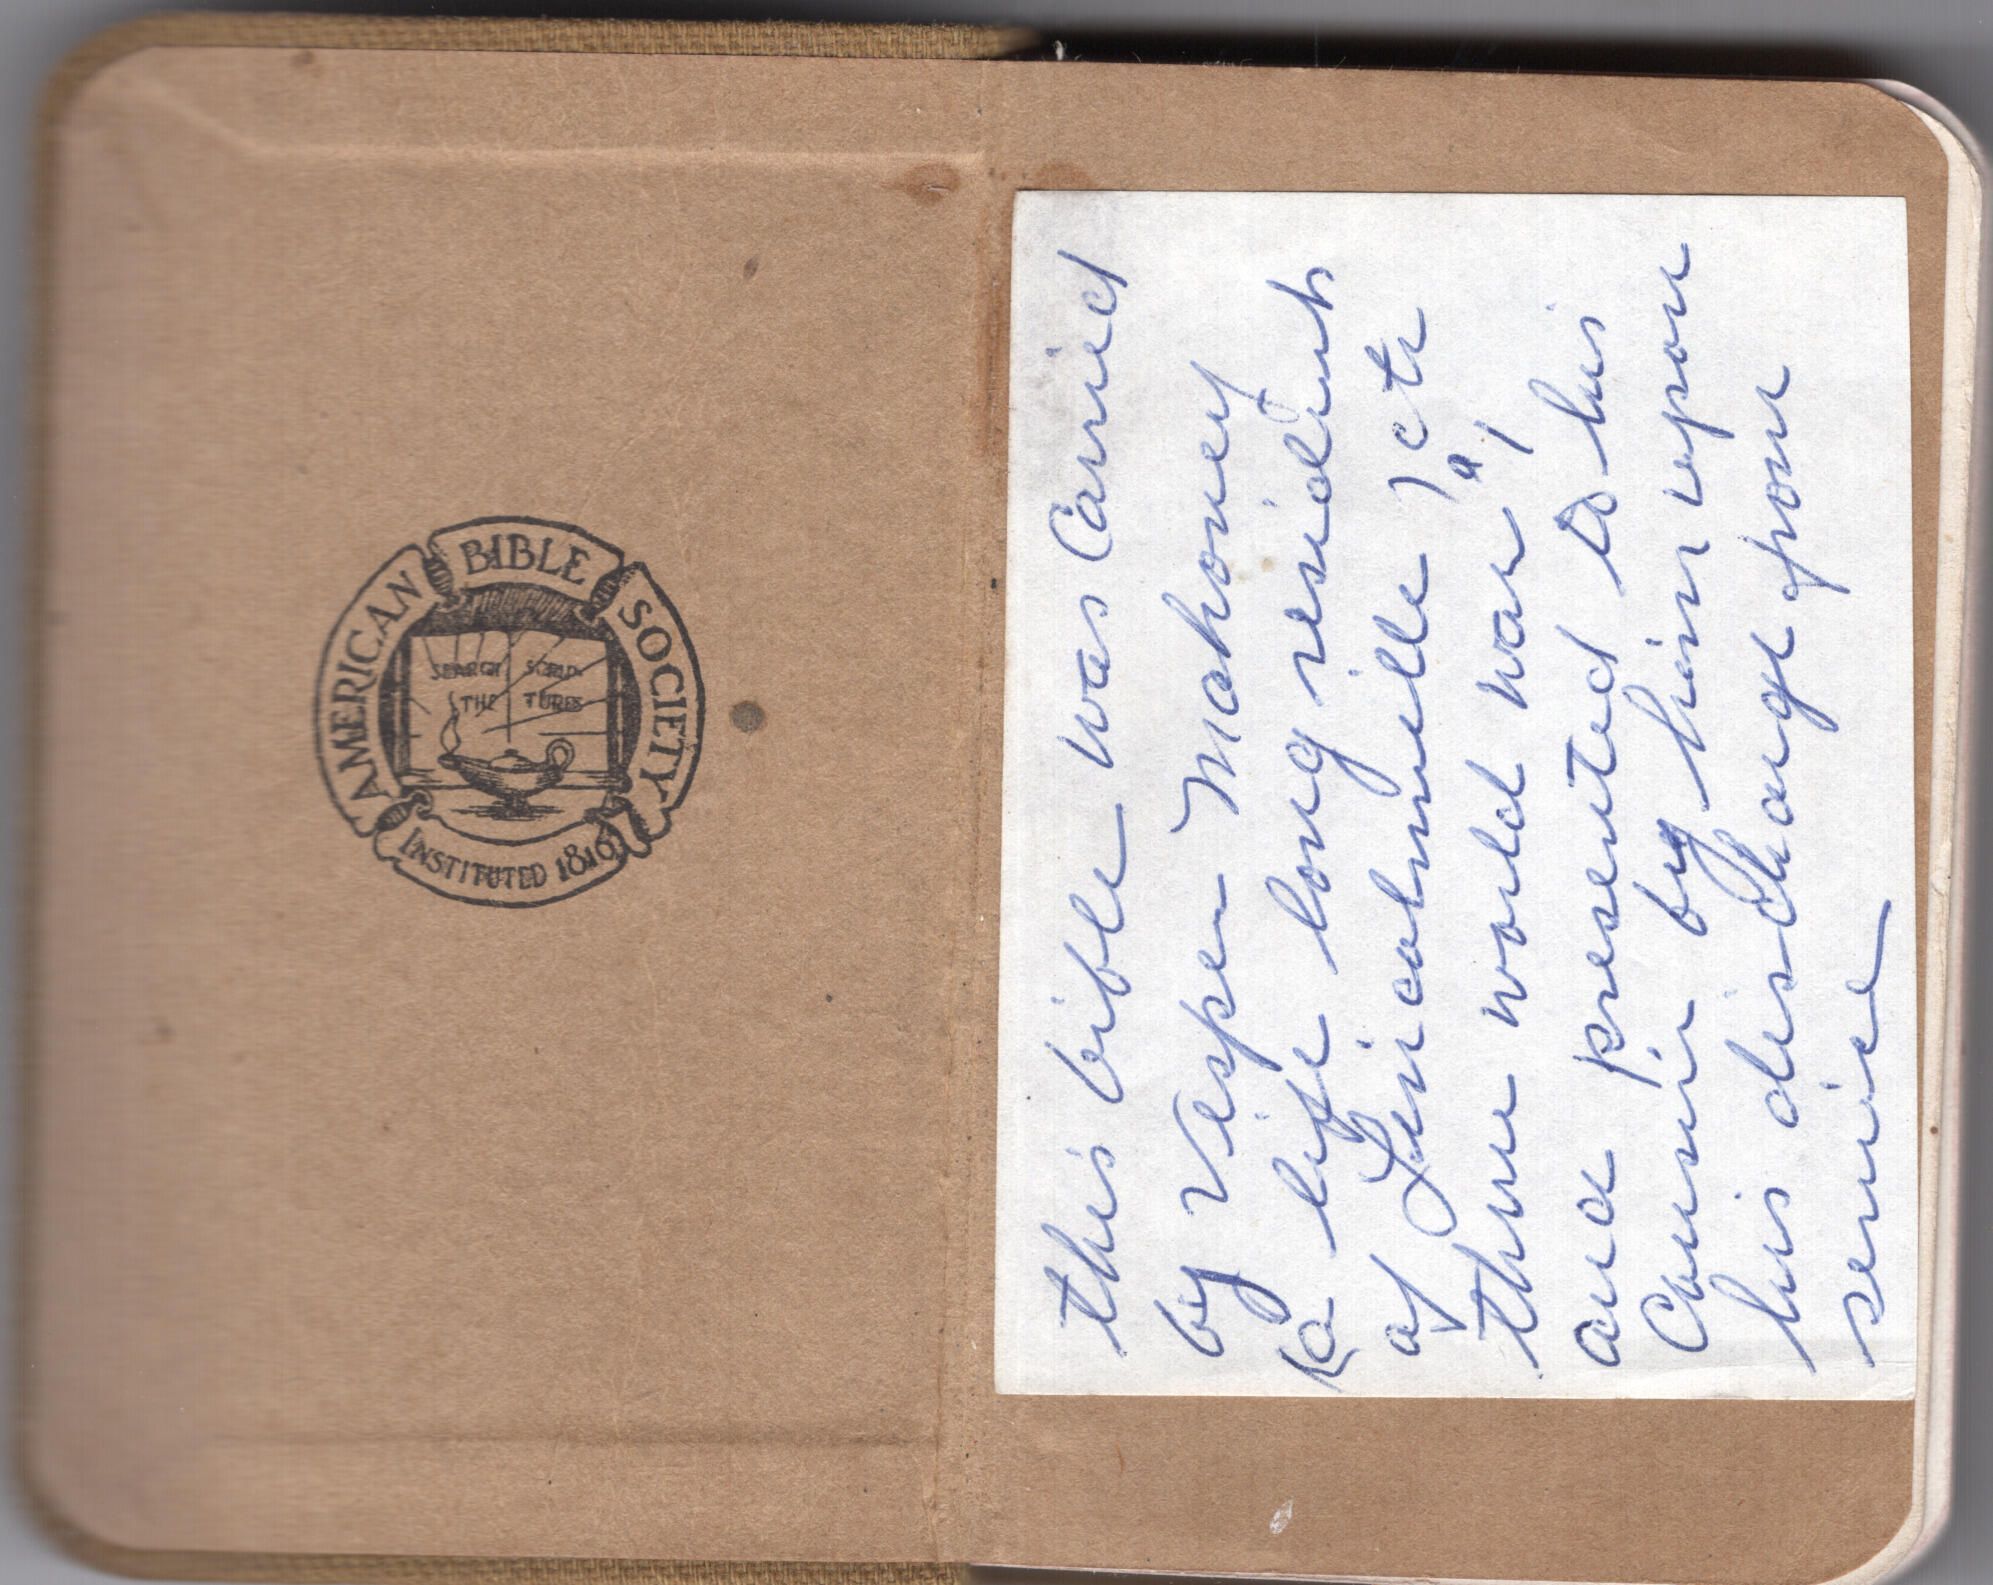 AMERICAN BIBLE SOCIETY
SEARCH THE SCRIP-
TURES
INSTITUTED 1816
this bible was Carried
by Vesper Mahoney
a life long resident
of Lincolnville, ct
threw world war 1,
and presented to his
Cousin by him upon
his discharge from
service